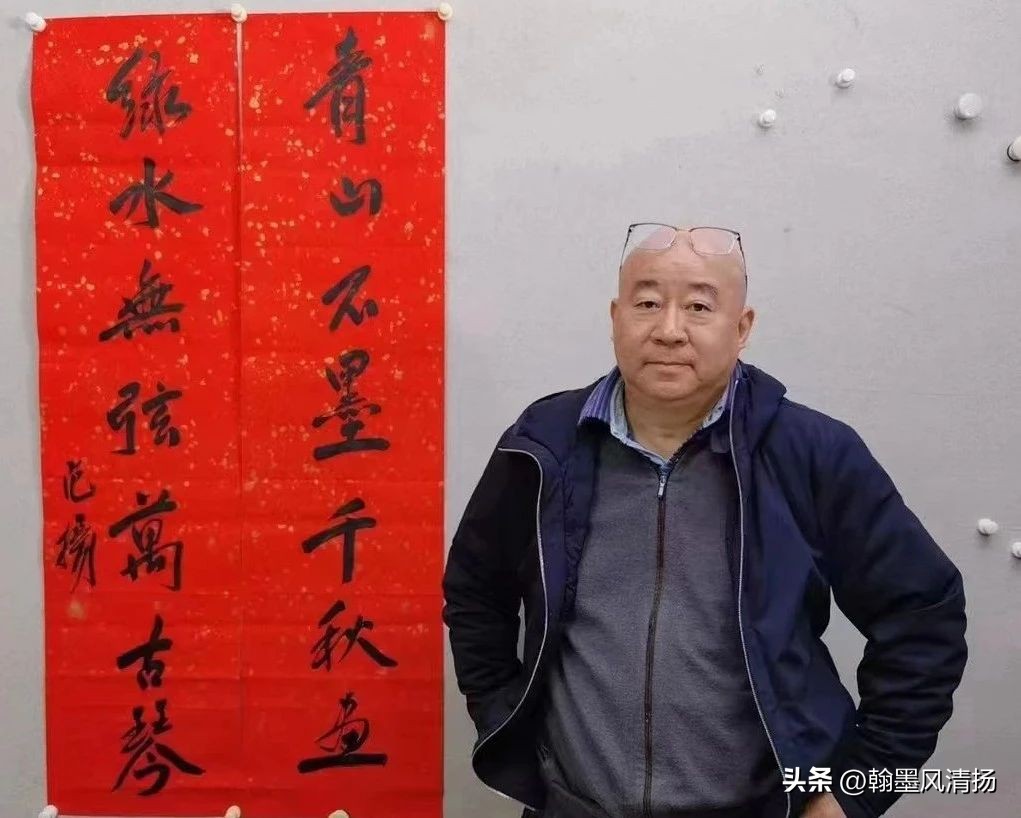 青山不墨千秋画
綠水無弦萬古琴
范揚
头条 @翰墨风清扬